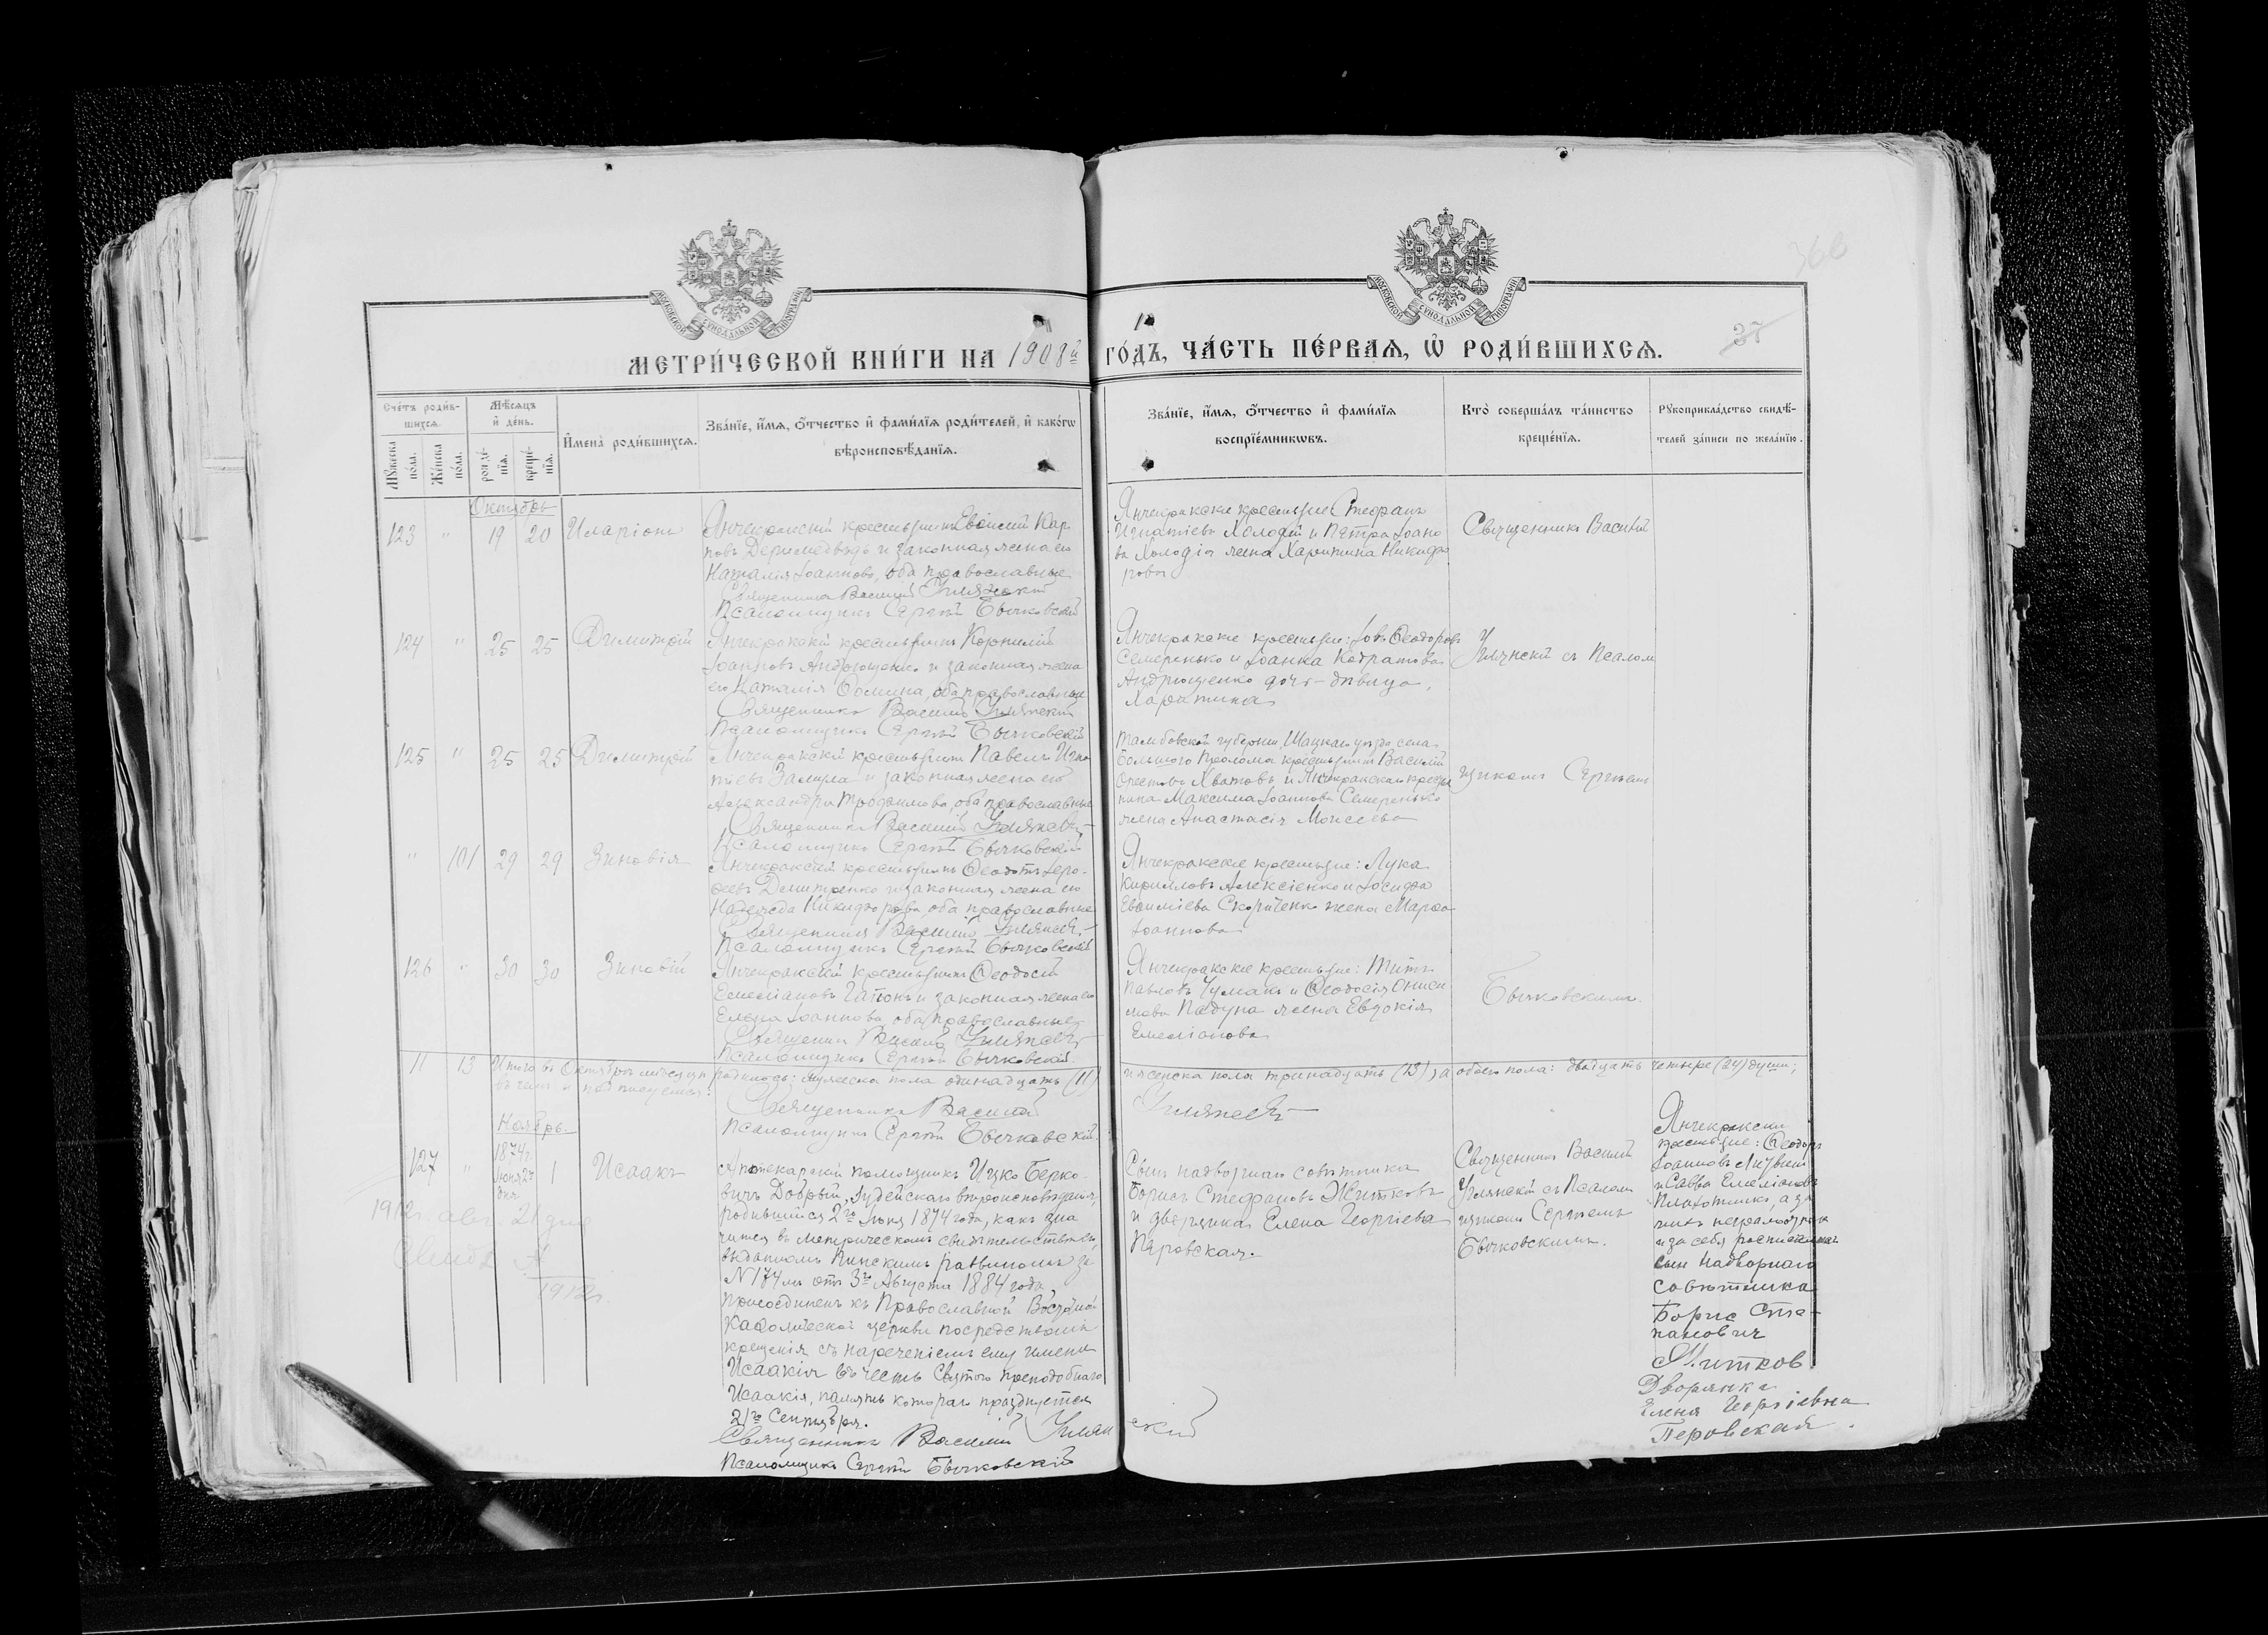 366
МОСКОВСКОЙ СѴНОДАЛЬНОЙ ТИПОГРАФІИ
МОСКОВСКОЙ СѴНОДАЛЬНОЙ ТИПОГРАФІИ
МЕТРИ́ЧЕСКОЙ КНИ́ГИ НА 1908й ГО́ДЪ, ЧА́СТЬ ПЕ́РВАЯ, Ѡ РОДИ́ВШИХСЯ.
37
Сче́тъ роди́в-
шихся.
Мꙋ́жеска по́ла.
Же́нска по́ла.
Мѣ́сяцъ
и҆ де́нь.
рожде́-
нїя.
креще́-
нїя.
И҆мена̀ роди́вшихся.
Зва́нїе, и҆́мя, ѻ҆́тчество и҆ фами́лїя роди́телей, и҆ како́гѡ
вѣроисповѣ́данїя.
Зва́нїе, и҆́мя, ѻ҆́тчество и҆ фами́лїя
воспрїе́мникѡвъ.
Кто̀ соверша́лъ та́инство
креще́нїя.
Рꙋкоприкла́дство свидѣ́-
телей за́писи по жела́нїю.
Октябрь
123 " 19 20 Иларіонъ
Янчекракскій крестьянинъ Евѳимій Кар-
повъ и законная жена его
Наталія Іоаннова, оба православные
Священникъ Василій Уманскій
Псаломщикъ Сергій Бычковскій
Янчекракскіе крестьяне Стефанъ
Игнатіевъ Холодій и Петра Іоано
ва Холодія жена Харитина Никифо
рова
Священникъ Василій
124 " 25 25 Димитрій
Янчекракскій крестьянинъ Корнилій
Іоанновъ Андрющенко и законная жена
его Наталія Ѳомина, оба православные
Священникъ Василій Уманскій
Псаломщикъ Сергій Бычковскій
Янчекракскіе крестьяне: Іовъ Ѳеодоровъ
Семеренько и Іоанна Кодратова
Андрющенко дочь - дѣвица,
Харитина
Уманскій съ Псалом
125 " 25 25 Димитрій
Янчекракскій крестьянинъ Павелъ Игна
тіевъ и законная жена его
Александра Трофимова, оба православные
Священникъ Василій Уманскій
Псаломщикъ Сергій Бычковскій
Тамбовской губерніи, Шацкаго уѣзда села
Большого Пролома крестьянинъ Василій
Орестовъ Хватовъ и Янчекракскаго крестья
нина Максима Іоаннова Семеренько
жена Анастасія Моисеева
щикомъ Сергіемъ
" 101 29 29 Зиновія
Янчекракскій крестьянинъ Ѳеодотъ Іеро-
ѳеевъ Дмитренко и законная жена его
Надежда Никифорова оба православные
Священникъ Василій Уманскій
Псаломщикъ Сергій Бычковскій
Янчекракскіе крестьяне: Лука
Кирилловъ Алексіенко и Іосифа
Евѳиміева Скориченко жена Марѳа
Іоаннова
126 " 30 30 Зиновій
Янчекракскій крестьянинъ Ѳеодосій
Емеліановъ и законная жена его
Елена Іоаннова оба православные
Священникъ Василій Уманскій
Псаломщикъ Сергій Бычковскій.
Янчекракскіе крестьяне: Титъ
Павловъ Чумакъ и Ѳеодосія Ониси
мова Падуна жена Евдокія
Емеліанова
Бычковскимъ.
11 13 Итого въ Октябрѣ мѣсяцѣ родилось: мужеска пола одинадцать (11) и женска пола тринадцать (13), а обоего пола: двадцать четыре (24) души;
въ чемъ и подписуемся:
Священникъ Василій Уманскій
Псаломщикъ Сергій Бычковскій.
Ноябрь
127 " 1874г. Іюня 2го дня 1 Исаакъ
1912г. авг. 21 дня
Свид. №
1912г.
Аптекарскій помощникъ Ицко Берко-
вичъ Добрый, Іудейскаго вѣроисповѣданія,
родившійся 2го Іюня 1874 года, какъ зна
чится въ метрическомъ свидѣтельствѣ
выданномъ Пинскимъ раввиномъ за
N 174мъ отъ 3го Августа 1884 года
Присоединенъ къ Православной Восточной
Каѳолической церкви посредствомъ
крещенія съ нареченіемъ ему имени
Исаакія въ честь Святого преподобнаго
Исаакія, память котораго празднуется
21го Сентября.
Священникъ Василій Уманскій
Псаломщикъ Сергій Бычковскій
Сынъ надворнаго совѣтника
Борисъ Стефановъ Житковъ
и дворянка Елена Георгіева
Перовская.
Священникъ Василій
Уманскій съ Псалом
щикомъ Сергіемъ
Бычковскимъ.
Янчекракскіе
крестьяне: Ѳеодоръ
Іоанновъ
и Савва Емеліановъ
Плахотникъ, а за
нихъ неграмотныхъ
и за себя росписался
сын Надворнаго
совѣтника
Борис Сте-
панович
Житков
Дворянка
Елена Георгіевна
Перовская.